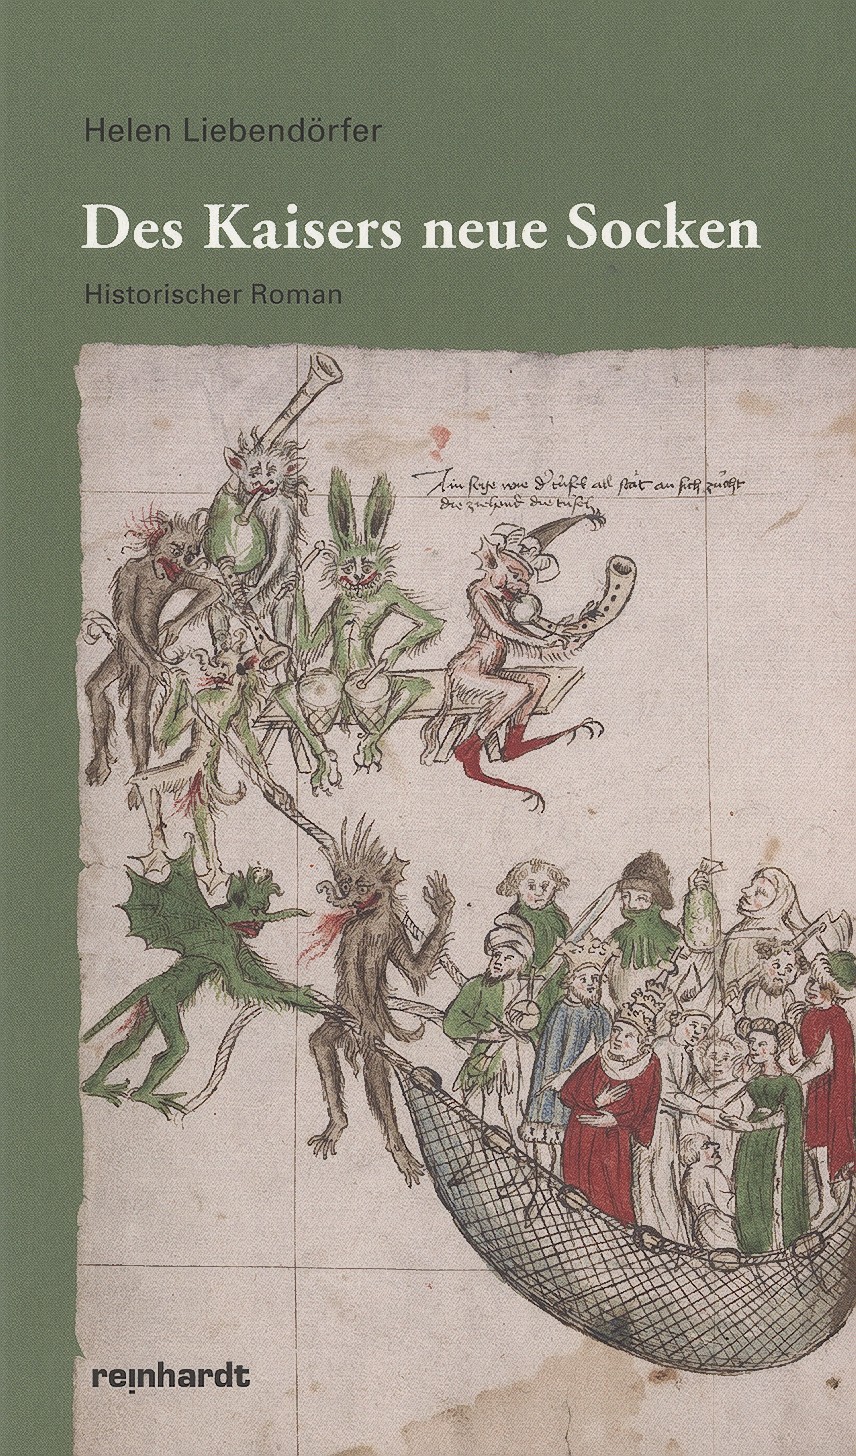 Helen Liebendörfer
Des Kaisers neue Socken
Historischer Roman
wie all an sich
die
reinhardt